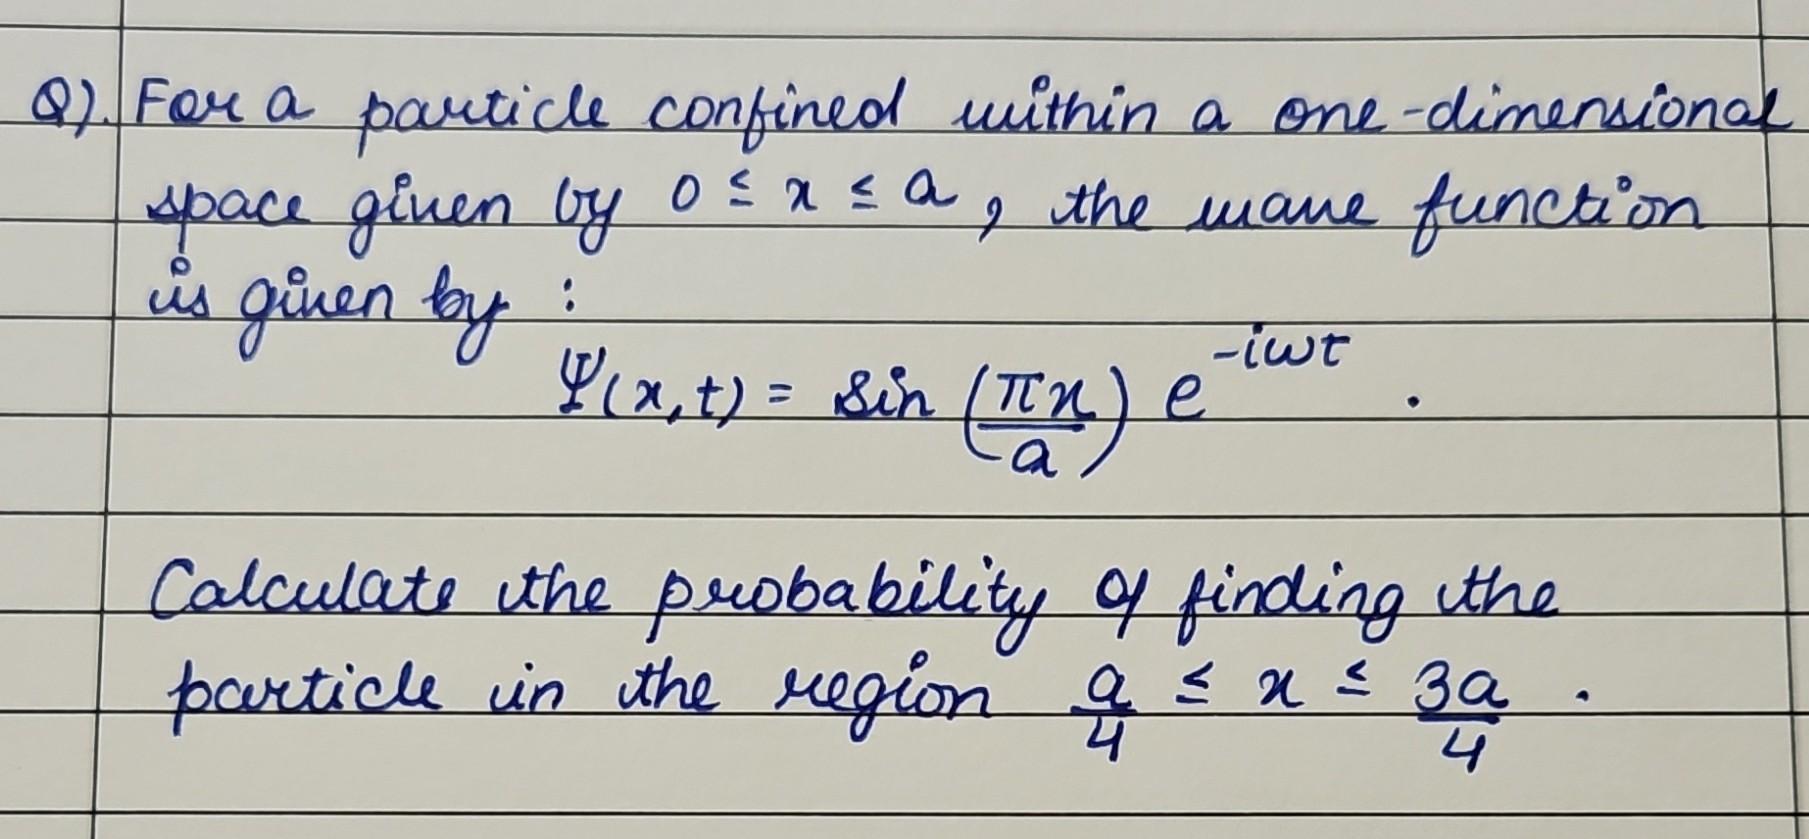 Q). For a particle confined within a one-dimensional
space given by 0 ≤ x ≤ a, the wave function
is given by :
Ψ(x,t) = sin (πx/a) e^{-iωt} .
Calculate the probability of finding the
particle in the region a/4 ≤ x ≤ 3a/4 .